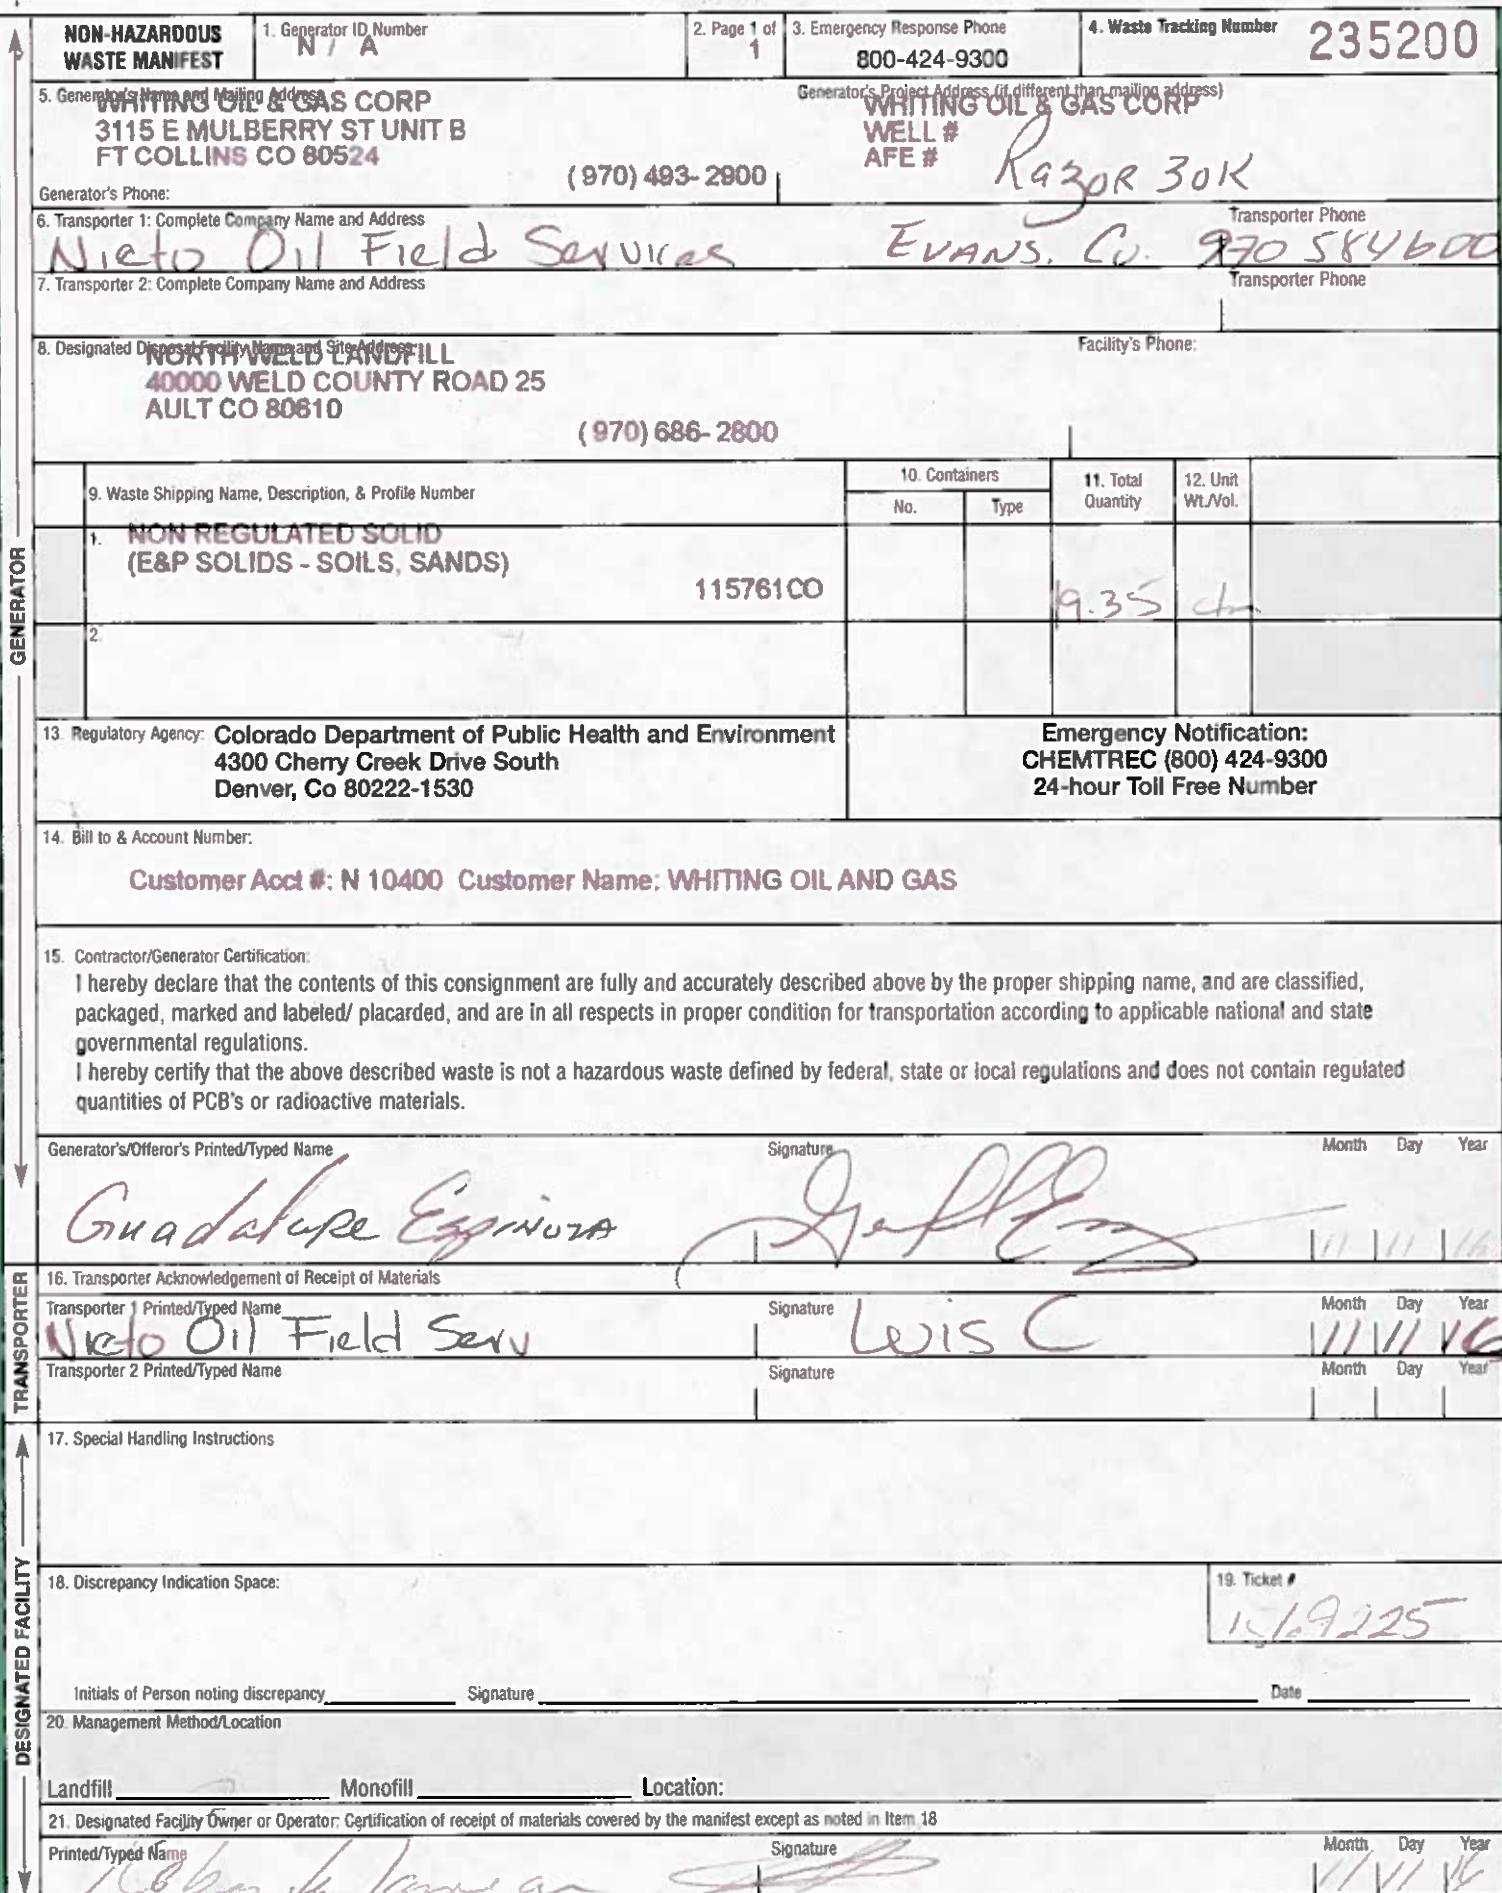 NON-HAZARDOUS WASTE MANIFEST
1. Generator ID Number
N / A
2. Page 1 of
1
3. Emergency Response Phone
800-424-9300
4. Waste Tracking Number
235200
5. Generator's Name and Mailing Address
WHITING OIL & GAS CORP
3115 E MULBERRY ST UNIT B
FT COLLINS CO 80524
(970) 493-2900
Generator's Phone:
Generator's Project Address (if different than mailing address)
WHITING OIL & GAS CORP
WELL #
AFE #
Razor 30K
6. Transporter 1: Complete Company Name and Address
Transporter Phone
Nieto Oil Field Services EVANS, Co. 970 584600
7. Transporter 2: Complete Company Name and Address
Transporter Phone
8. Designated Disposal Facility Name and Site Address:
Facility's Phone:
NORTH WELD LANDFILL
40000 WELD COUNTY ROAD 25
AULT CO 80610
(970) 686-2800
9. Waste Shipping Name, Description, & Profile Number
10. Containers
No.
Type
11. Total Quantity
12. Unit Wt./Vol.
1. NON REGULATED SOLID
(E&P SOLIDS - SOILS, SANDS)
115761CO
2.
13. Regulatory Agency: Colorado Department of Public Health and Environment
4300 Cherry Creek Drive South
Denver, Co 80222-1530
Emergency Notification:
CHEMTREC (800) 424-9300
24-hour Toll Free Number
14. Bill to & Account Number:
Customer Acct #: N 10400 Customer Name: WHITING OIL AND GAS
15. Contractor/Generator Certification:
I hereby declare that the contents of this consignment are fully and accurately described above by the proper shipping name, and are classified,
packaged, marked and labeled/ placarded, and are in all respects in proper condition for transportation according to applicable national and state
governmental regulations.
I hereby certify that the above described waste is not a hazardous waste defined by federal, state or local regulations and does not contain regulated
quantities of PCB's or radioactive materials.
Generator's/Offeror's Printed/Typed Name
Signature
Month Day Year
Guadalupe Espinoza
11 11 16
16. Transporter Acknowledgement of Receipt of Materials
Transporter 1 Printed/Typed Name
Signature
Month Day Year
Nieto Oil Field Serv
Luis C
11 11 16
Transporter 2 Printed/Typed Name
Signature
Month Day Year
17. Special Handling Instructions
18. Discrepancy Indication Space:
19. Ticket #
Initials of Person noting discrepancy
Signature
Date
20. Management Method/Location
Landfill
Monofill
Location:
21. Designated Facility Owner or Operator: Certification of receipt of materials covered by the manifest except as noted in Item 18
Printed/Typed Name
Signature
Month Day Year
11 11 16
GENERATOR
TRANSPORTER
DESIGNATED FACILITY